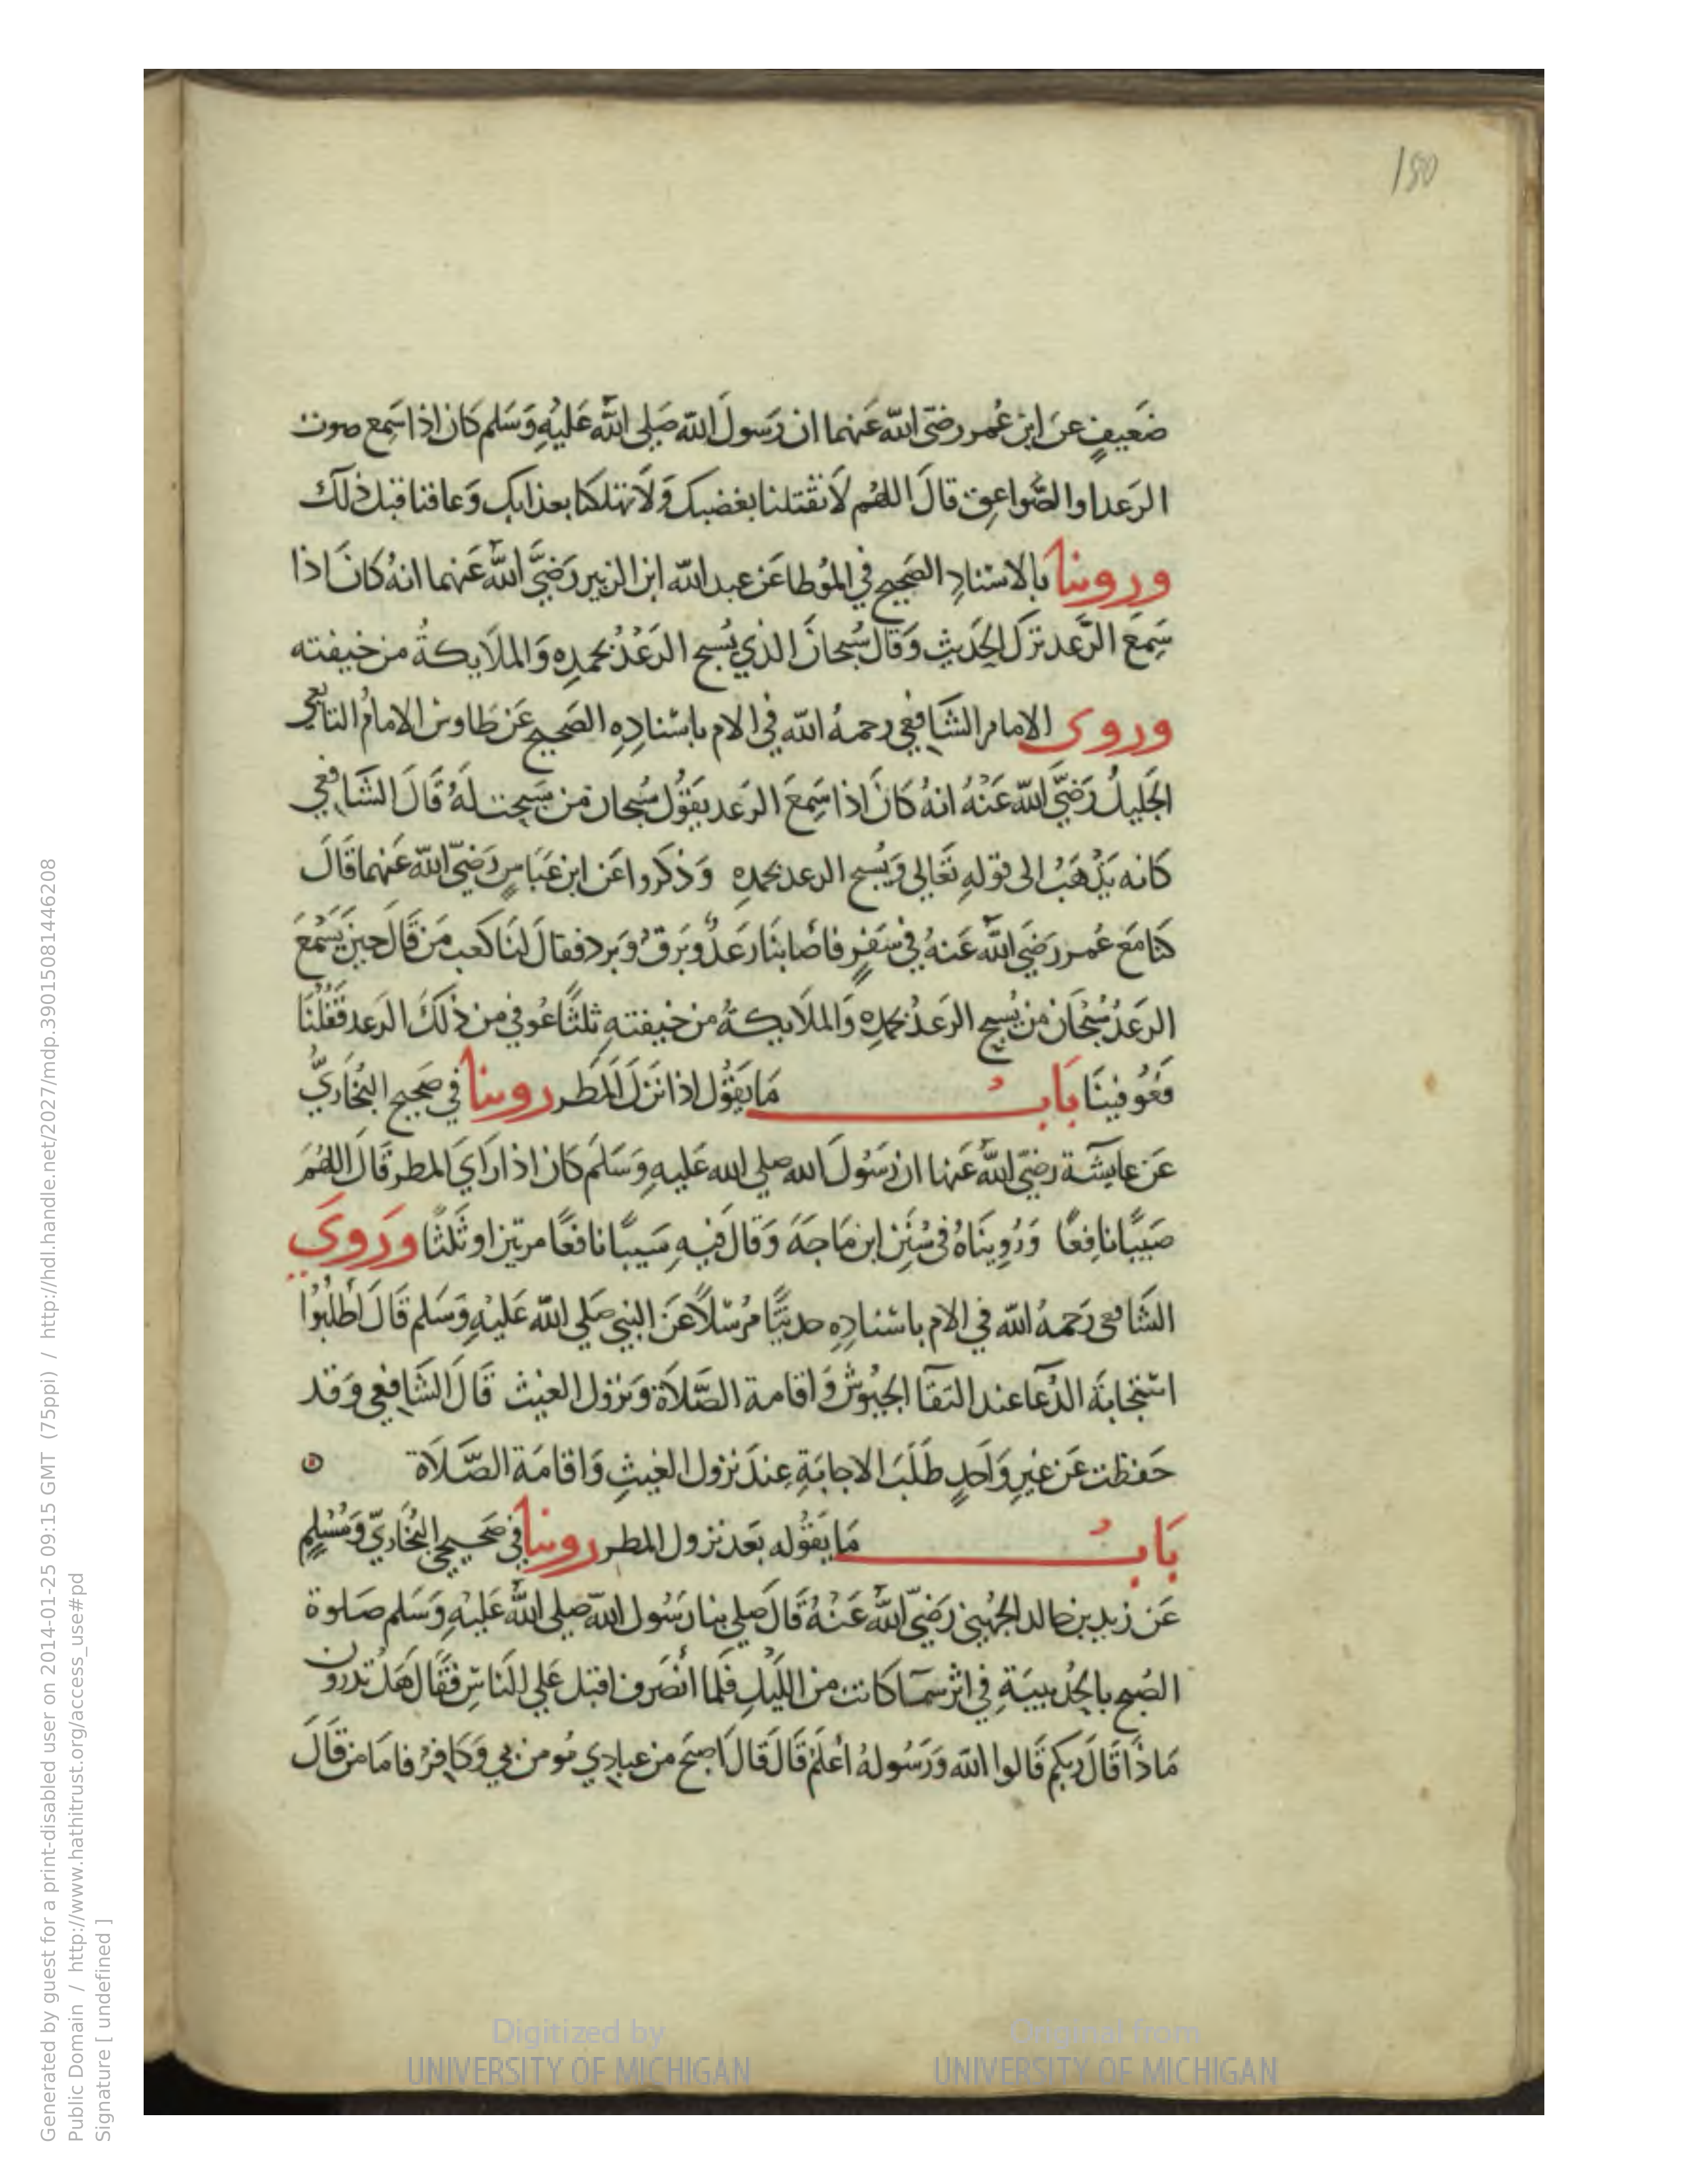 180
ضَعِيفٍ عن ابن عُمر رضي الله عَنهما ان رَسولَ الله صَلى الله عَليهِ وَسَلم كان اذا سَمع صوت
الرَعد او الصَّواعق قالَ اللهُم لَا تقتلنا بغضبك وَلَا تهلكنا بعذابك وَعافنا قبل ذلك
وروينا بالاسْنادِ الصَحيح في المُوطا عَن عبد الله ابن الزبير رَضيَ الله عَنهما انهُ كانَ اذا
سَمِعَ الرَّعد ترَك الحَديث وَقال سُبحانَ الذي يُسبح الرَعدُ بحمدِه وَالملَايكةُ من خيفته
وروى الامام الشَافِعي رحمهُ الله في الام باسْنادِهِ الصَحيح عَن طَاوس الامامُ التابعي
الجَليلُ رَضيَ الله عَنْهُ انهُ كانَ اذا سَمِعَ الرَعد يقوُل سُبحان مَن سَبحت لهُ قَالَ الشَافعي
كانه يَذْهَبُ الى قوله تَعَالى وَيُسبح الرعد بحمدِه وَذكروا عَن ابن عَبَاسٍ رَضيَ الله عَنهما قَالَ
كنا مَع عُمر رَضيَ الله عَنهُ في سَفرٍ فأصابنَا رَعدٌ وبَرقٌ وَبَرد فقالَ لنَا كعب مَن قَالَ حِينَ يَسْمَعَ
الرَعدُ سُبْحَانَ مَن يُسبح الرَعدُ بحمدِه وَالملَايكةُ من خيفته ثلثًا عُوفي من ذلكَ الرَعد فقُلْنَا
فَعُوفينَا بَابُ مَا يَقوُل اذا نَزلَ المَطر روينا في صَحيح البُخاريَّ
عَن عايشة رضيَ الله عَنها ان رَسُولَ الله صلى الله عَليهِ وَسَلَم كان اذا رَاَيَ المطر قَالَ اللهُمَ
صَيبًا نافِعًا وَرُوينَاهُ في سُنَنِ ابن مَاجَهَ وَقَال فيهِ سَيبًا نافعًا مرتين او ثَلثًا وَروَي
الشَافعي رَحمهُ الله في الام باسْنادِه حديثًا مُرْسَلًا عَن النبي صَلي الله عَليهِ وَسَلم قَالَ أطْلُبُوا
اسْتجَابَة الدُعَا عند التقَا الجيُوش وَاقامة الصَّلَاة وَنزول الغيث قَالَ الشَافِعِي وَقد
حَفظت عَن غيرِ وَاحدٍ طَلَبَ الاجابَةِ عِندَ نزول الغيثِ وَاقامَة الصَّلَاة
بَابُ مَا يَقوُله بَعَد نزول المطر روينا في صَحيحي البُخَاريّ وَمُسْلِمٍ
عَن زيد بن خالد الجُهَنِي رَضيَ الله عَنْهُ قَالَ صلي بنا رَسُول الله صلى الله عَليهِ وَسَلم صَلوة
الصُبح بالحُديبيَةِ في اثر سمَآ كانت من اللَيل فلَما أنصَرفَ اقبل عَلي النَاسِ فقَالَ هَل تدرون
مَاذَا قَالَ رَبكم قَالوا الله وَرَسُولهُ أعْلَم قَالَ قَالَ اصبَح من عبادِي مُومن بي وَكافرْ فامَا من قَالَ
Generated by guest for a print-disabled user on 2014-01-25 09:15 GMT (75ppi) / http://hdl.handle.net/2027/mdp.39015081446208
Public Domain / http://www.hathitrust.org/access_use#pd
Signature [ undefined ]
Digitized by
UNIVERSITY OF MICHIGAN
Original from
UNIVERSITY OF MICHIGAN